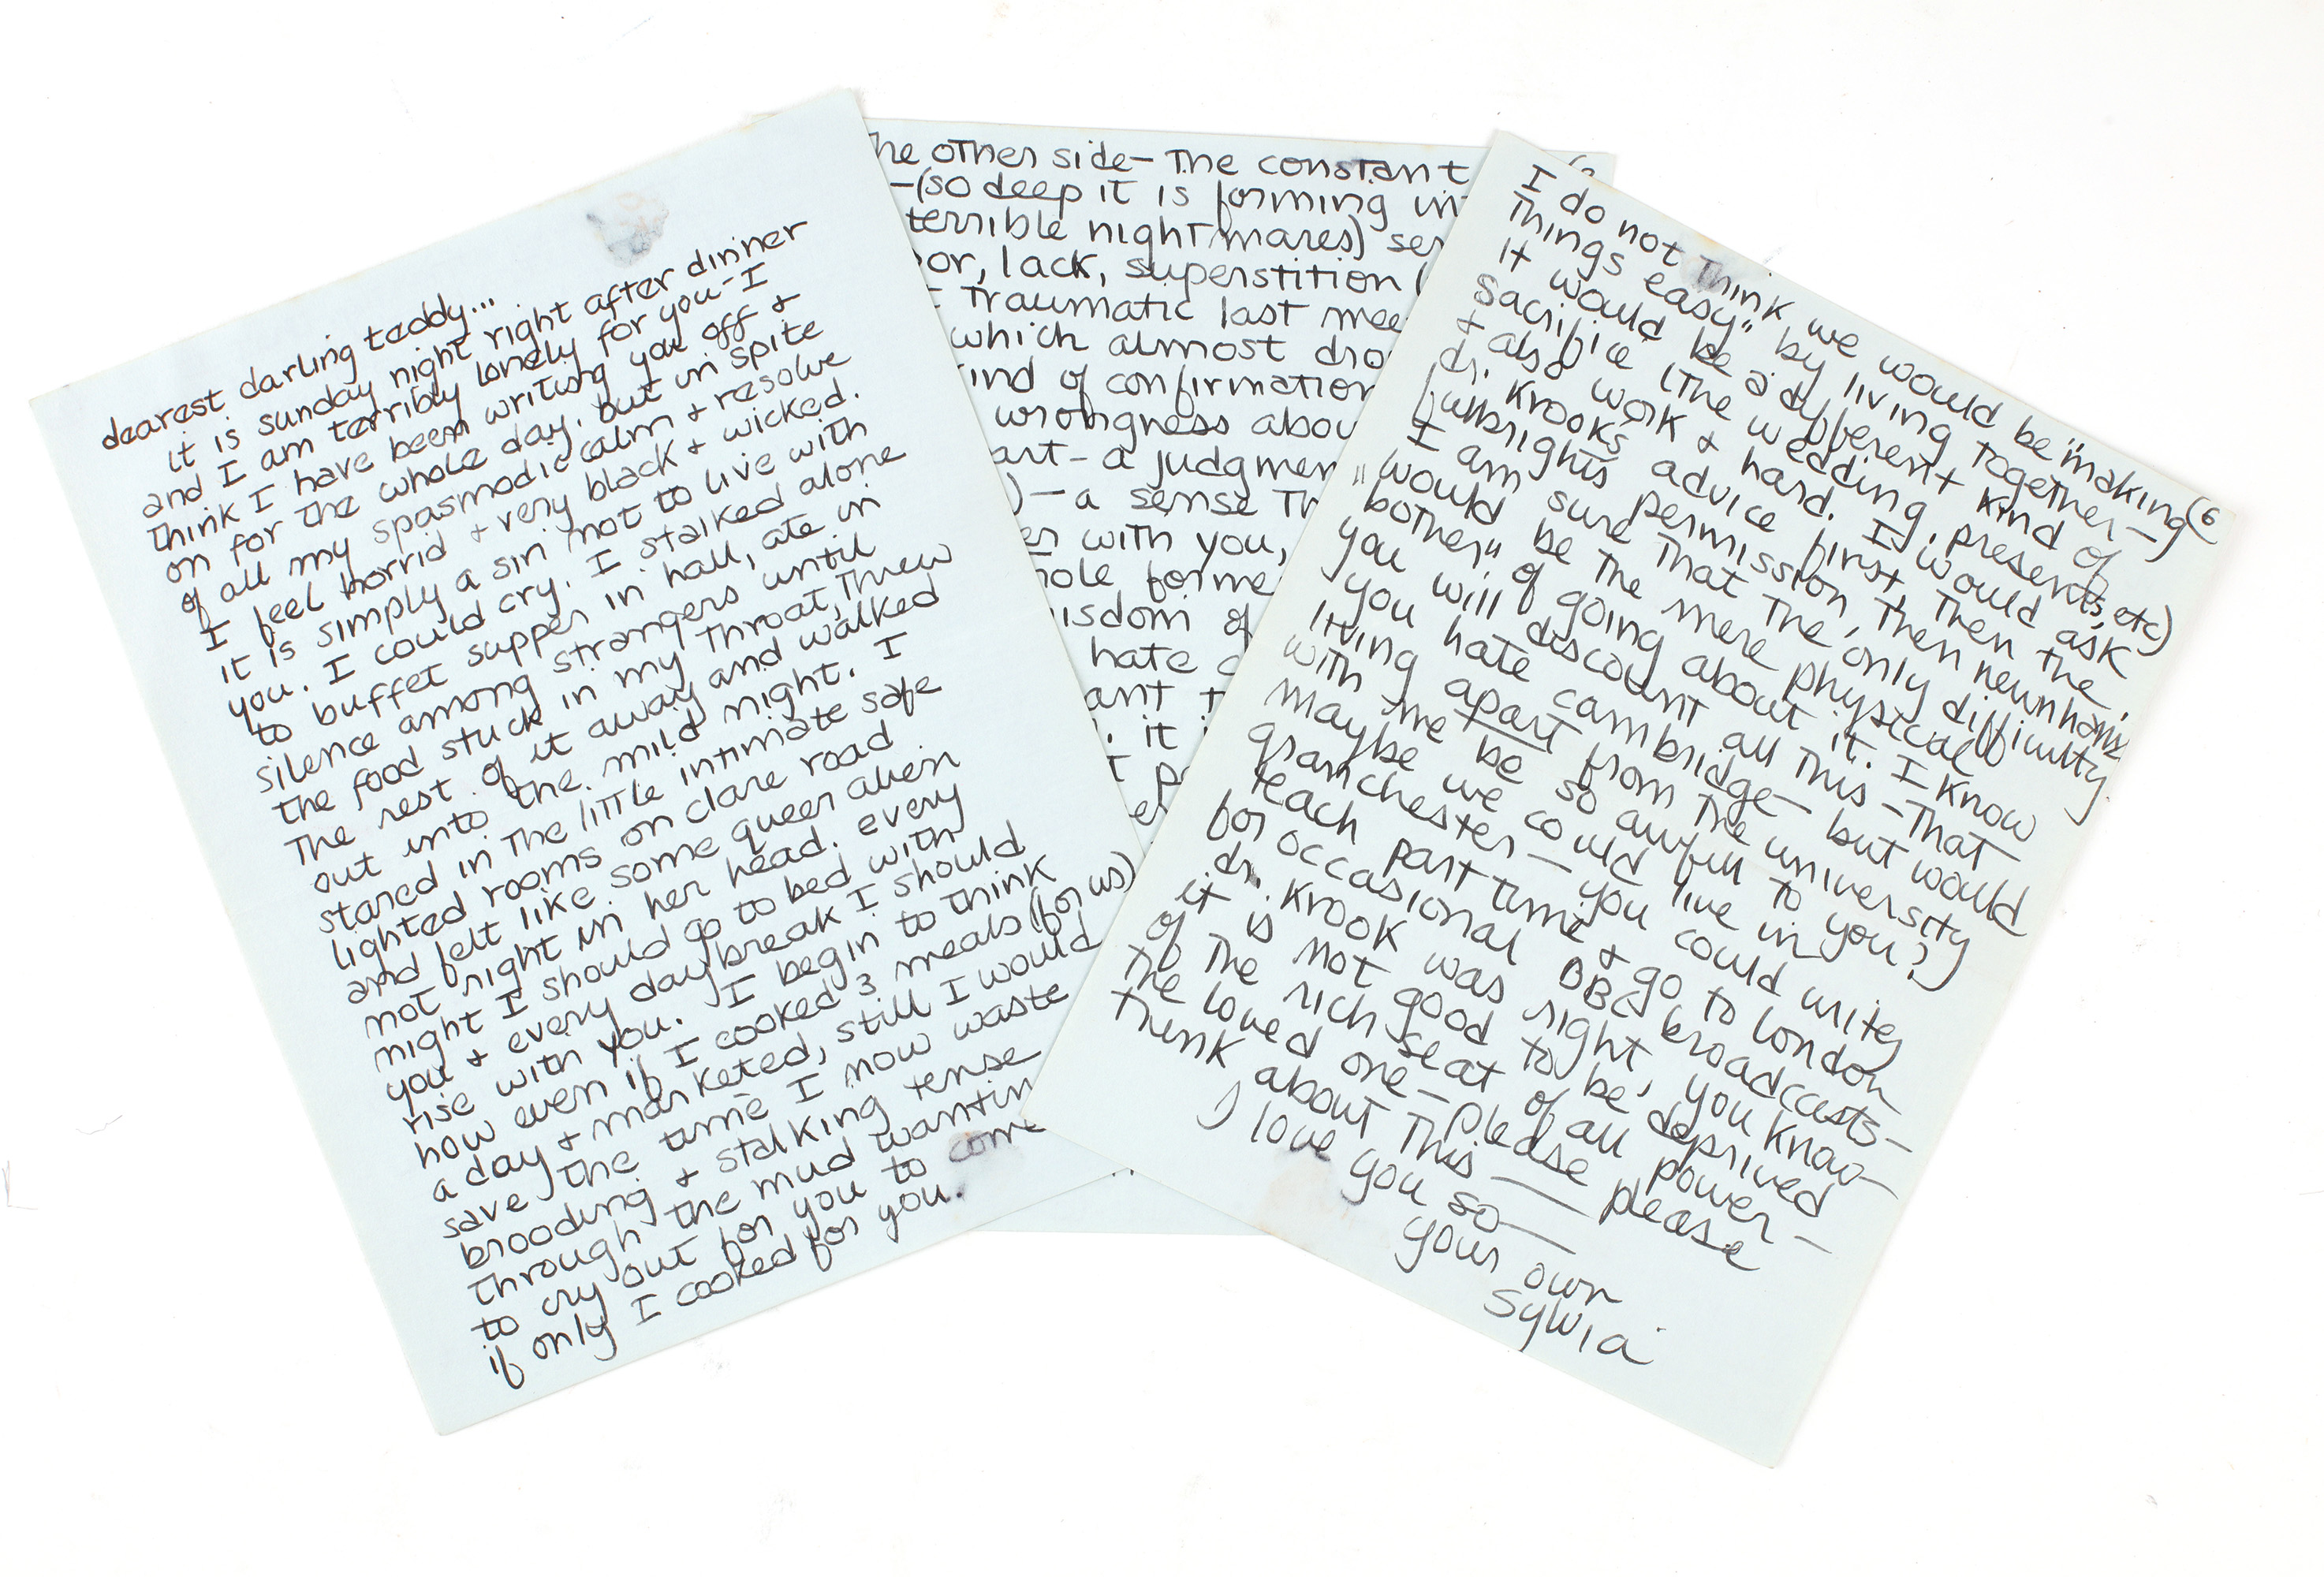 dearest darling teddy...
it is sunday night right after dinner
and I am terribly lonely for you - I
think I have been writing you off &
on for the whole day. but in spite
of all my spasmodic calm & resolve
I feel horrid & very black & wicked.
it is simply a sin not to live with
you. I could cry. I stalked alone
to buffet supper in hall, ate in
silence among strangers until
the food stuck in my throat, threw
the rest of it away and walked
out into the mild night. I
stared in the little intimate safe
lighted rooms on clare road
and felt like some queer alien
not right in her head. every
night I should go to bed with
you & every daybreak I should
rise with you. I begin to think
how even if I cooked 3 meals (for us)
a day & marketed, still I would
save the time I now waste
brooding & stalking tense
through the mud wantin
to cry out for you to come
if only I cooked for you.
he other side - the constant
- (so deep it is forming in
terrible nightmares)
or, lack, superstition (
traumatic last mee
which almost dro
ind of confirmation
wrongness abou
art - a judgmen
) - a sense th
er with you,
hole forme
isdom of
hate
ant t
. it
t p
er
I do not think we would be "making (6
things easy" by living together -
it would be a different kind of
sacrifice (the wedding, presents, etc)
& also work & hard. I would ask
dr. Krook's advice first, then the
fulbright's permission, then newnham's
I am sure that the only difficulty
would be the mere physical
"bother" of going about it. I know
you will discount all this - that
you hate cambridge - but would
living apart from the university
with me be so awful to you?
maybe we could live in
granchester - you could write,
teach part time & go to london
for occasional BBC broadcasts -
dr. Krook was right, you know -
it is not good to be deprived
of the rich seat of all power -
the loved one - please please
think about this —
I love you so —
your own
sylvia